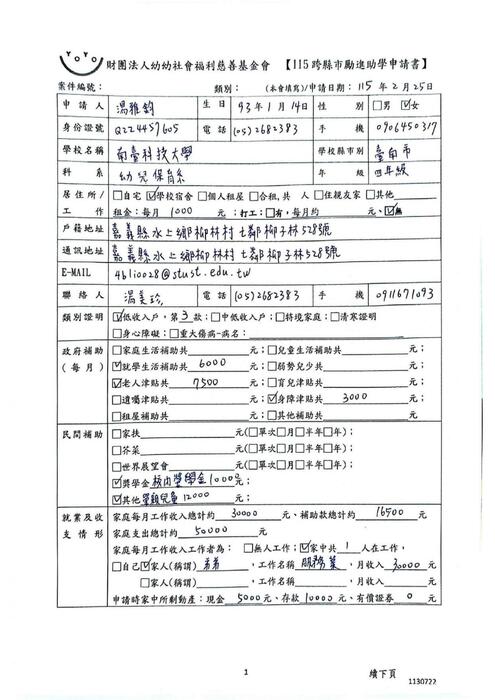 YOYO 財團法人幼幼社會福利慈善基金會 【115跨縣市勵進助學申請書】
案件編號： 類別： (本會填寫)/申請日期：115年2月25日
申請人 馮雅鈞 生日 93年1月14日 性別 □男☑女
身份證號 Q224457605 電話 (05)2682383 手機 0906450317
學校名稱 南臺科技大學 學校縣市別 臺南市
科系 幼兒保育系 年級 四年級
居住所/ □自宅☑學校宿舍□個人租屋□合租,共 人□住親友家□其他
工作 租金：每月 1000 元；打工：□有,每月約 元、☑無
戶籍地址 嘉義縣水上鄉柳林村七鄰柳子林528號
通訊地址 嘉義縣水上鄉柳林村七鄰柳子林528號
E-MAIL 4b1i0028@stust.edu.tw
聯絡人 馮美玲 電話 (05)2682383 手機 0911671093
類別證明 ☑低收入戶，第3款；□中低收入戶；□特境家庭；□清寒證明
□身心障礙；□重大傷病-病名：
政府補助 □家庭生活補助共 元；□兒童生活補助共 元；
(每月) ☑就學生活補助共 6000 元；□弱勢兒少共 元；
☑老人津貼共 7500 元；□育兒津貼共 元；
□遺囑津貼共 元；☑身障津貼共 3000 元；
□租屋補助共 元；□其他補助共 元
民間補助 □家扶 元(□單次□月□半年□年)；
□芥菜 元(□單次□月□半年□年)；
□世界展望會 元(□單次□月□半年□年)；
☑獎學金 校內獎學金10000元；
☑其他 12000 元；
就業及收 家庭每月工作收入總計約 30000 元、補助款總計約 16500
支情形 家庭支出總計約 50000 元
家庭每月工作收入工作者為：□無人工作；☑家中共 1 人在工作，
□自己☑家人(稱謂) 弟弟 ，工作名稱 服務業 ，月收入 30000 元
□家人(稱謂) ，工作名稱 ，月收入 元
申請時家中所剩動產：現金 5000 元、存款 10000 元、有價證券 0 元
1
續下頁
1130722